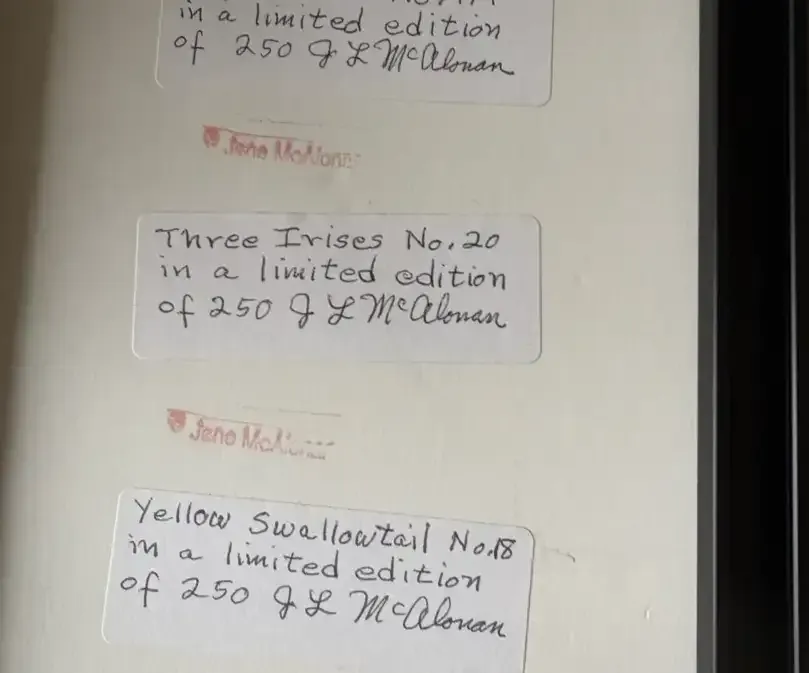 in a limited edition
of 250 J L McAlonan
Jeno
Three Irises No. 20
in a limited edition
of 250 J L McAlonan
Jeno
Yellow Swallowtail No. 18
in a limited edition
of 250 J L McAlonan